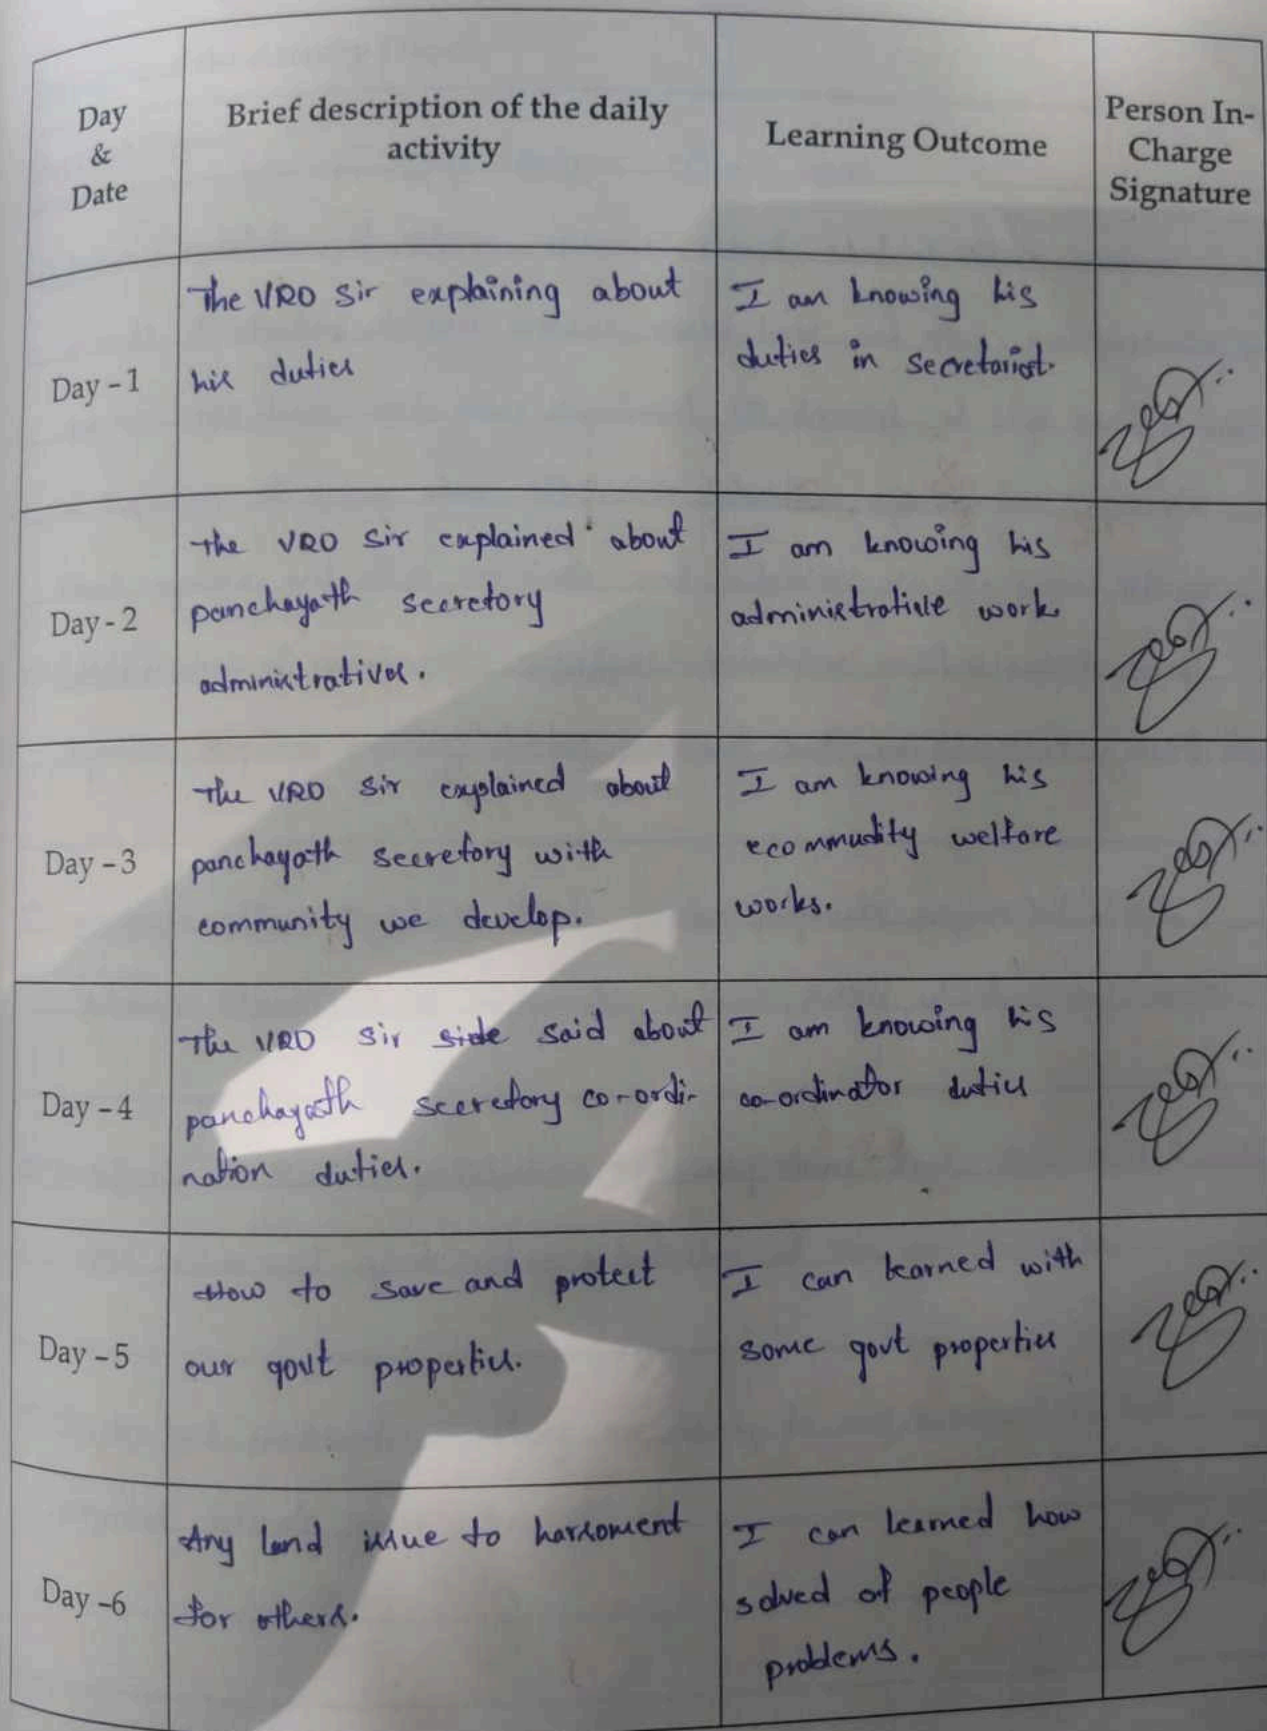 Day
&
Date
Brief description of the daily
activity
Learning Outcome
Person In-
Charge
Signature
Day - 1
The VRO Sir explaining about
his duties
I am knowing his
duties in secretariat.
Day - 2
The VRO Sir explained about
panchayath secretory
administratives.
I am knowing his
administrative work.
Day - 3
The VRO Sir explained about
panchayath secretory with
community we develop.
I am knowing his
ecommudity welfare
works.
Day - 4
The VRO Sir side said about
panchayath secretory co-ordi-
nation duties.
I am knowing his
co-ordinator duties
Day - 5
How to save and protect
our govt properties.
I can learned with
some govt properties
Day -6
Any land issue to harsoment
for others.
I can learned how
solved of people
problems.